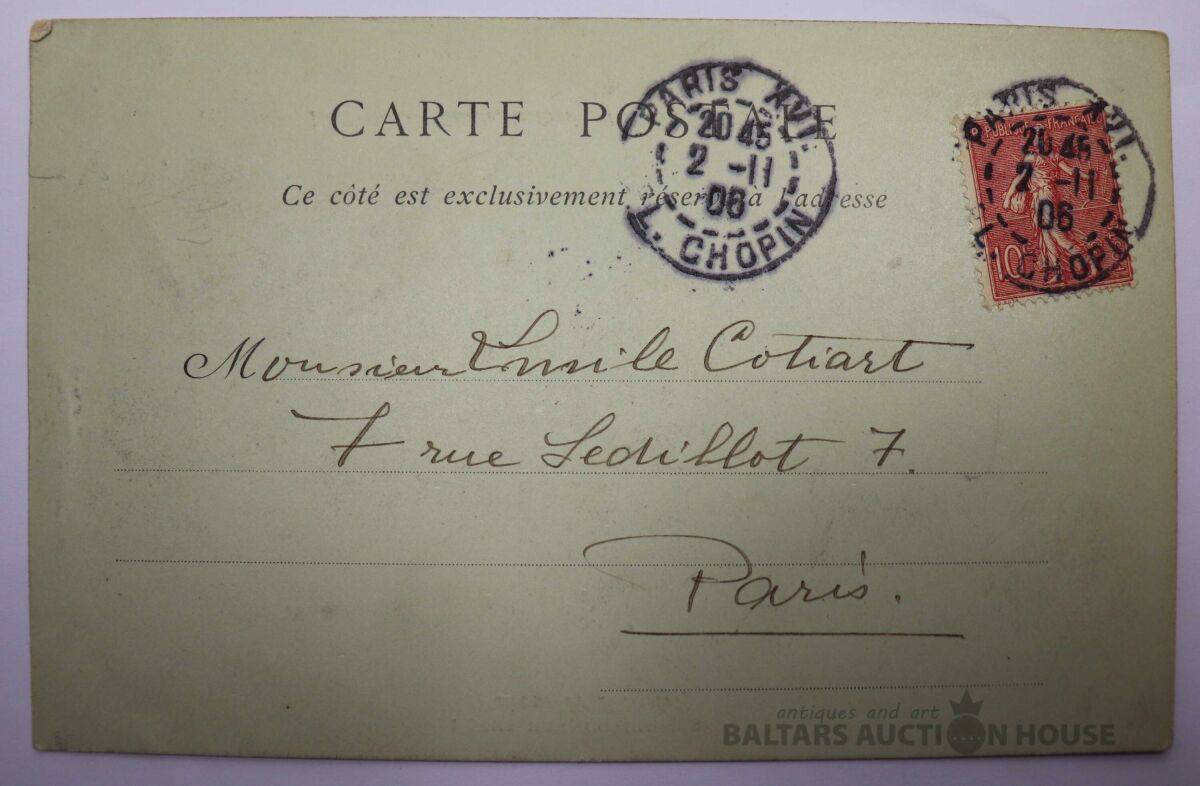 CARTE POSTALE
Ce côté est exclusivement réservé à l'adresse
PARIS XVI.
20 45
2 -11
06
L. CHOPIN
PARIS XVI.
20 45
2 -11
06
L. CHOPIN
REPUBLIQUE FRANÇAISE
10c
Monsieur Emile Cotiart
7 rue Sedillot 7.
Paris.
antiques and art
BALTARS AUCTION HOUSE